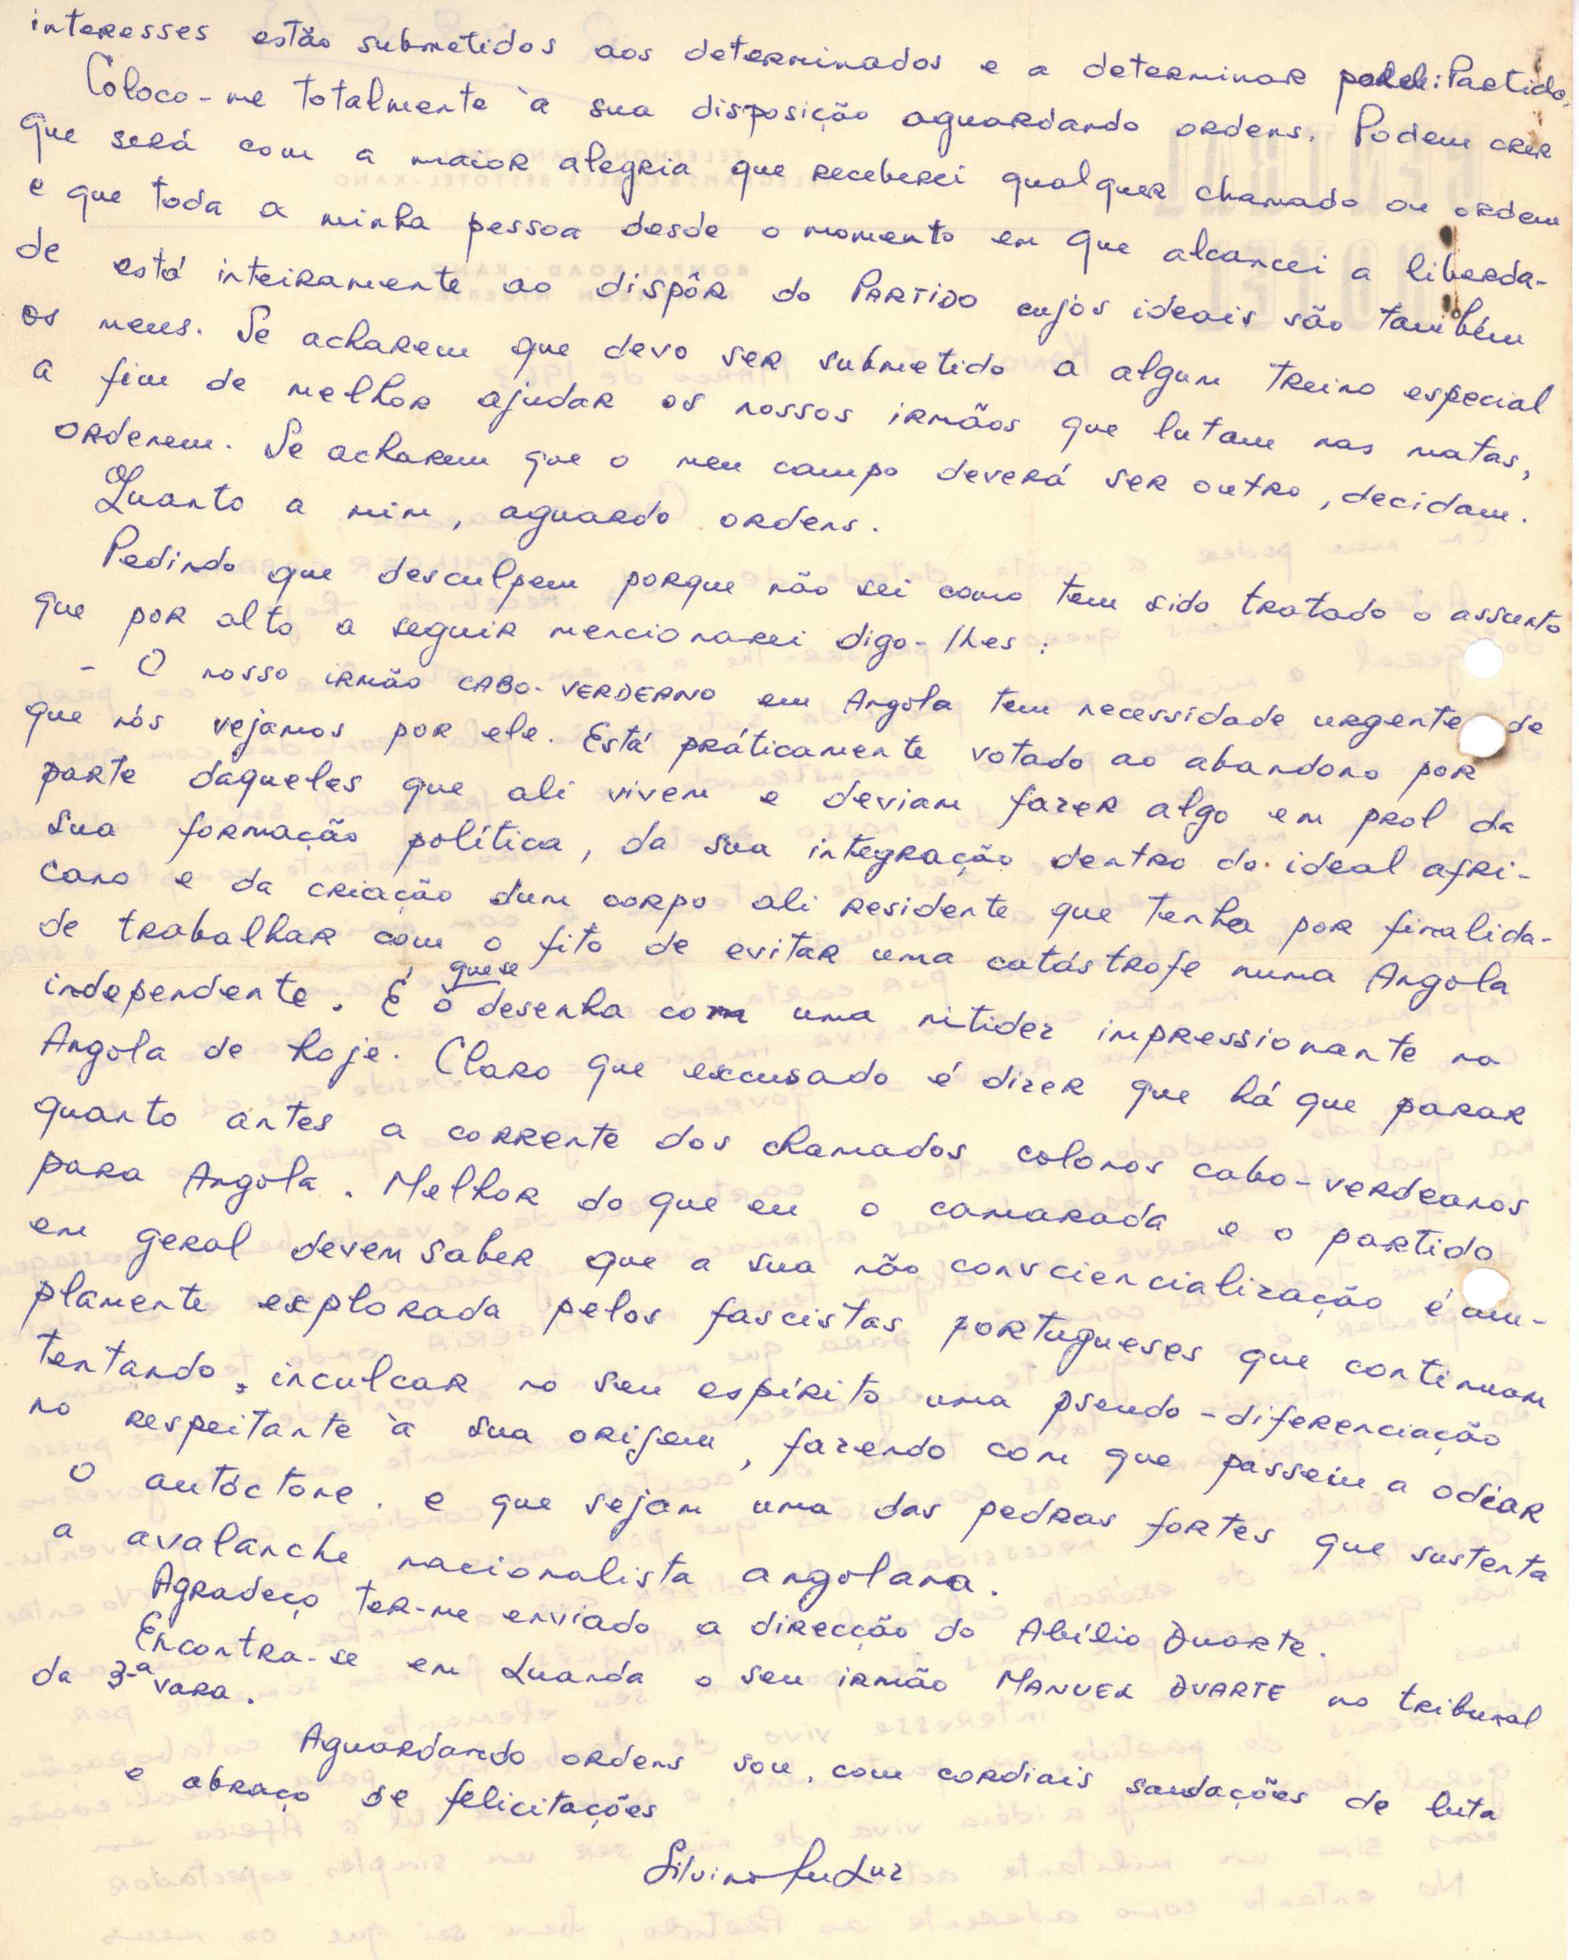 interesses estão submetidos aos determinados e a determinar pelo Partido.
Coloco-me totalmente à sua disposição aguardando ordens. Podem crer
que será com a maior alegria que receberei qualquer chamado ou ordem
e que toda a minha pessoa desde o momento em que alcancei a liberda-
de está inteiramente ao dispôr do PARTIDO cujos ideais são também
os meus. Se acharem que devo ser submetido a algum treino especial
a fim de melhor ajudar os nossos irmãos que lutam nas matas,
ordenem. Se acharem que o meu campo deverá ser outro, decidam.
Quanto a mim, aguardo ordens.
Pedindo que desculpem porque não sei como tem sido tratado o assunto
que por alto a seguir mencionarei digo-lhes:
- O nosso irmão CABO-VERDERNO em Angola tem necessidade urgente de
que nós vejamos por ele. Está práticamente votado ao abandono por
parte daqueles que ali vivem e deviam fazer algo em prol da
sua formação política, da sua integração dentro do ideal afri-
cano e da criação dum corpo ali residente que tenha por finalida-
de trabalhar com o fito de evitar uma catástrofe numa Angola
independente. É o que se desenha com uma nitidez impressionante na
Angola de hoje. Claro que excusado é dizer que há que parar
quanto antes a corrente dos chamados colonos cabo-verdeanos
para Angola. Melhor do que eu o camarada e o partido
em geral devem saber que a sua não consciencialização é am-
plamente explorada pelos fascistas portugueses que continuam
tentando inculcar no seu espírito uma pseudo-diferenciação
no respeitante à sua origem, fazendo com que passem a odiar
o autóctone. e que sejam uma das pedras fortes que sustenta
a avalanche nacionalista angolana.
Agradeço ter-me enviado a direcção do Abílio Duarte.
Encontra-se em Luanda o seu irmão MANUEL DUARTE no tribunal
da 3ª vara.
Aguardando ordens sou, com cordiais saudações de luta
e abraço de felicitações
Silvino da Luz